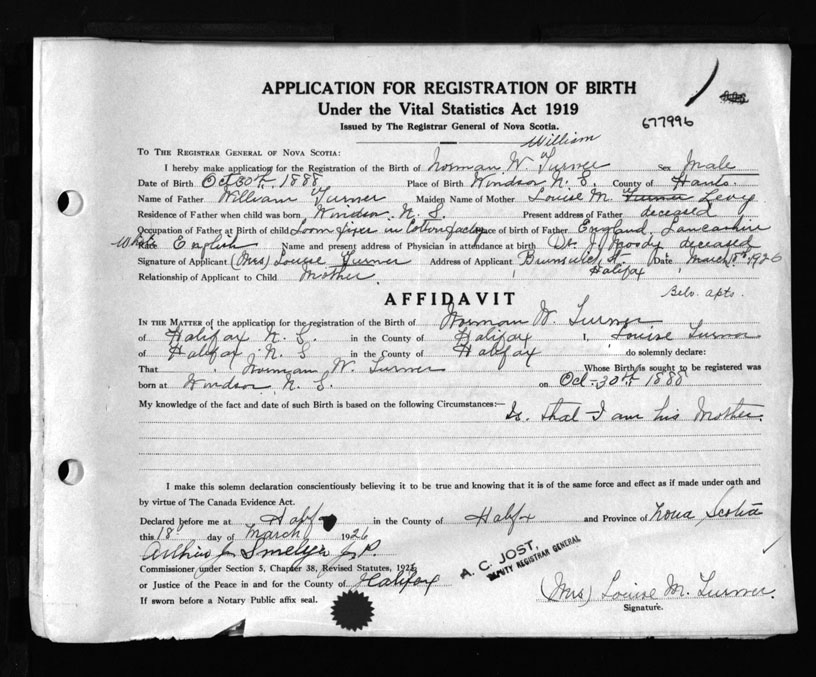 APPLICATION FOR REGISTRATION OF BIRTH
Under the Vital Statistics Act 1919
Issued by The Registrar General of Nova Scotia.
677996
William
TO THE REGISTRAR GENERAL OF NOVA SCOTIA:
I hereby make application for the Registration of the Birth of Norman W. Turner Sex Male
Date of Birth Oct 30th 1888 Place of Birth Windsor N. S. County of Hants.
Name of Father William Turner Maiden Name of Mother Louise M. Turner Levy
Residence of Father when child was born Windsor N. S. Present address of Father deceased
Occupation of Father at Birth of child Loom fixer in Cotton factory Place of birth of Father England, Lancashire
White English Name and present address of Physician in attendance at birth Dr. J. Moody deceased
Signature of Applicant (Mrs) Louise Turner Address of Applicant Brunswick St. Date March 18th 1926
Relationship of Applicant to Child Mother Halifax
AFFIDAVIT
IN THE MATTER of the application for the registration of the Birth of Norman W. Turner
of Halifax N. S. in the County of Halifax I, Louise Turner
of Halifax N. S in the County of Halifax do solemnly declare:
That Norman W. Turner Whose Birth is sought to be registered was
born at Windsor N. S. on Oct 30th 1888
My knowledge of the fact and date of such Birth is based on the following Circumstances:— Is that I am his Mother.
I make this solemn declaration conscientiously believing it to be true and knowing that it is of the same force and effect as if made under oath and
by virtue of The Canada Evidence Act.
Declared before me at Halifax in the County of Halifax and Province of Nova Scotia
this 18 day of March 1926
Commissioner under Section 5, Chapter 38, Revised Statutes, 1923,
or Justice of the Peace in and for the County of Halifax
If sworn before a Notary Public affix seal.
A. C. JOST,
DEPUTY REGISTRAR GENERAL
(Mrs) Louise M. Turner.
Signature.